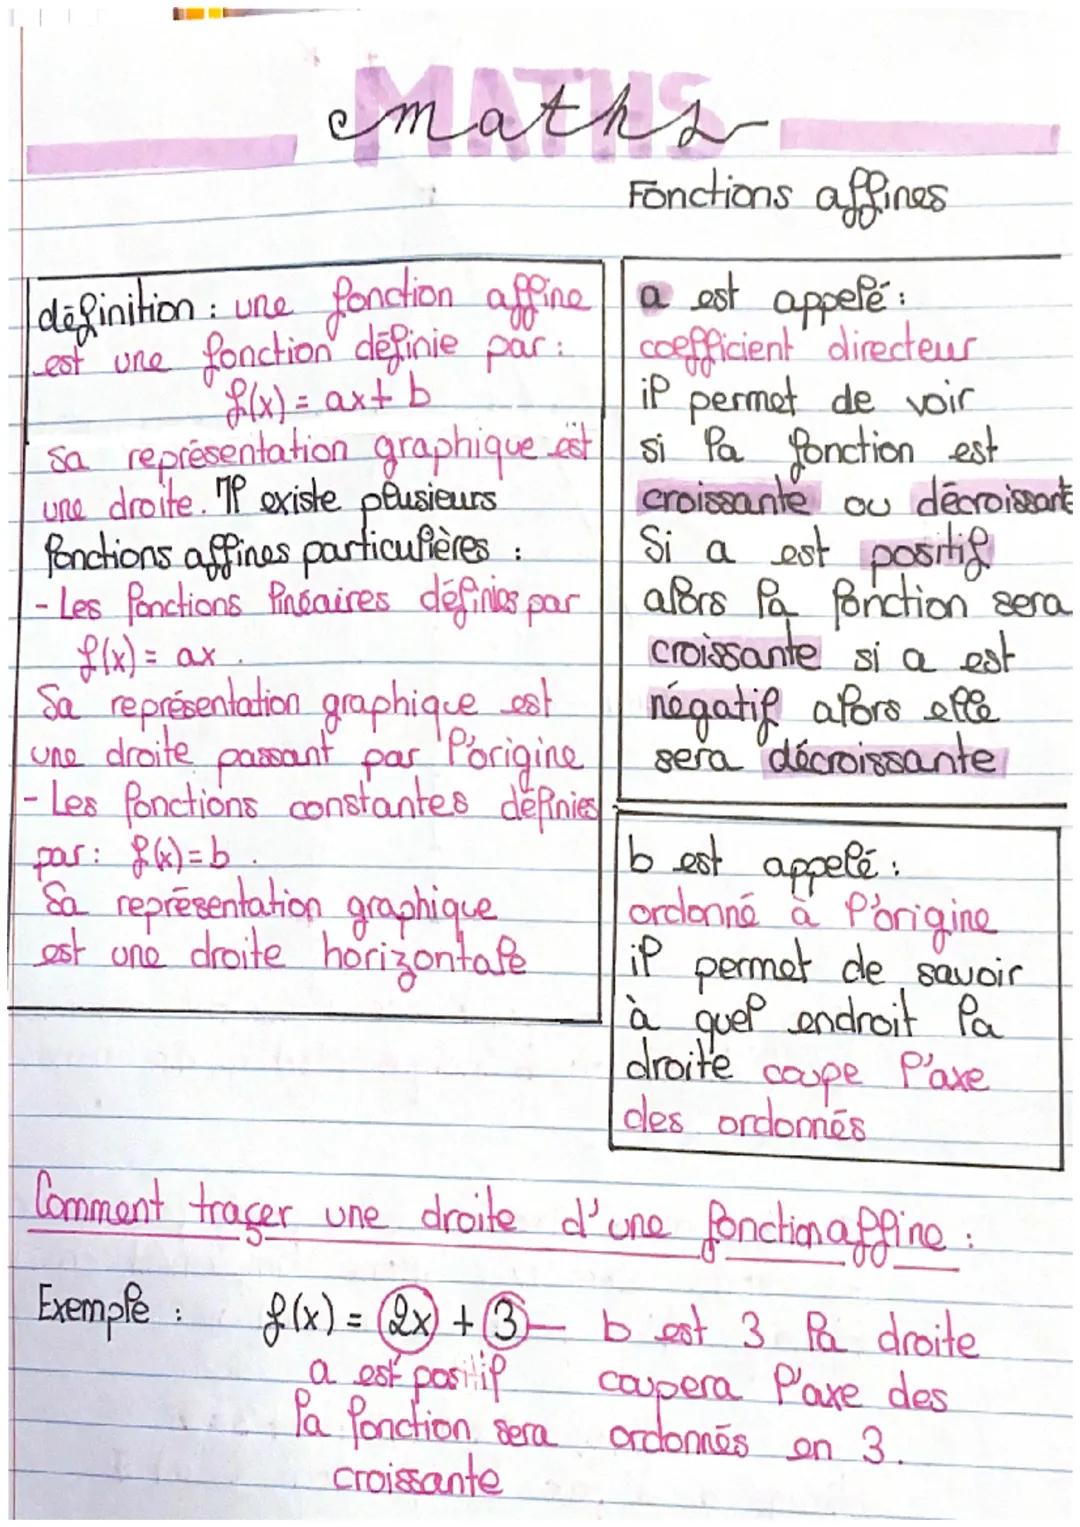 MATHS
maths
Fonctions affines
définition : une fonction affine
est une fonction définie par :
f(x) = ax + b
Sa représentation graphique est
une droite. Il existe plusieurs
fonctions affines particulières :
- Les fonctions linéaires définies par
f(x) = ax .
Sa représentation graphique est
une droite passant par l'origine
- Les fonctions constantes définies
par : f(x) = b .
Sa représentation graphique
est une droite horizontale
a est appelé :
coefficient directeur
il permet de voir
si la fonction est
croissante ou décroissant
Si a est positif
alors la fonction sera
croissante si a est
négatif alors elle
sera décroissante
b est appelé :
ordonné à l'origine
il permet de savoir
à quel endroit la
droite coupe l'axe
des ordonnés
Comment traçer une droite d'une fonction affine :
Exemple : f(x) = 2x + 3 — b est 3 la droite
a est positif coupera l'axe des
la fonction sera ordonnés en 3.
croissante